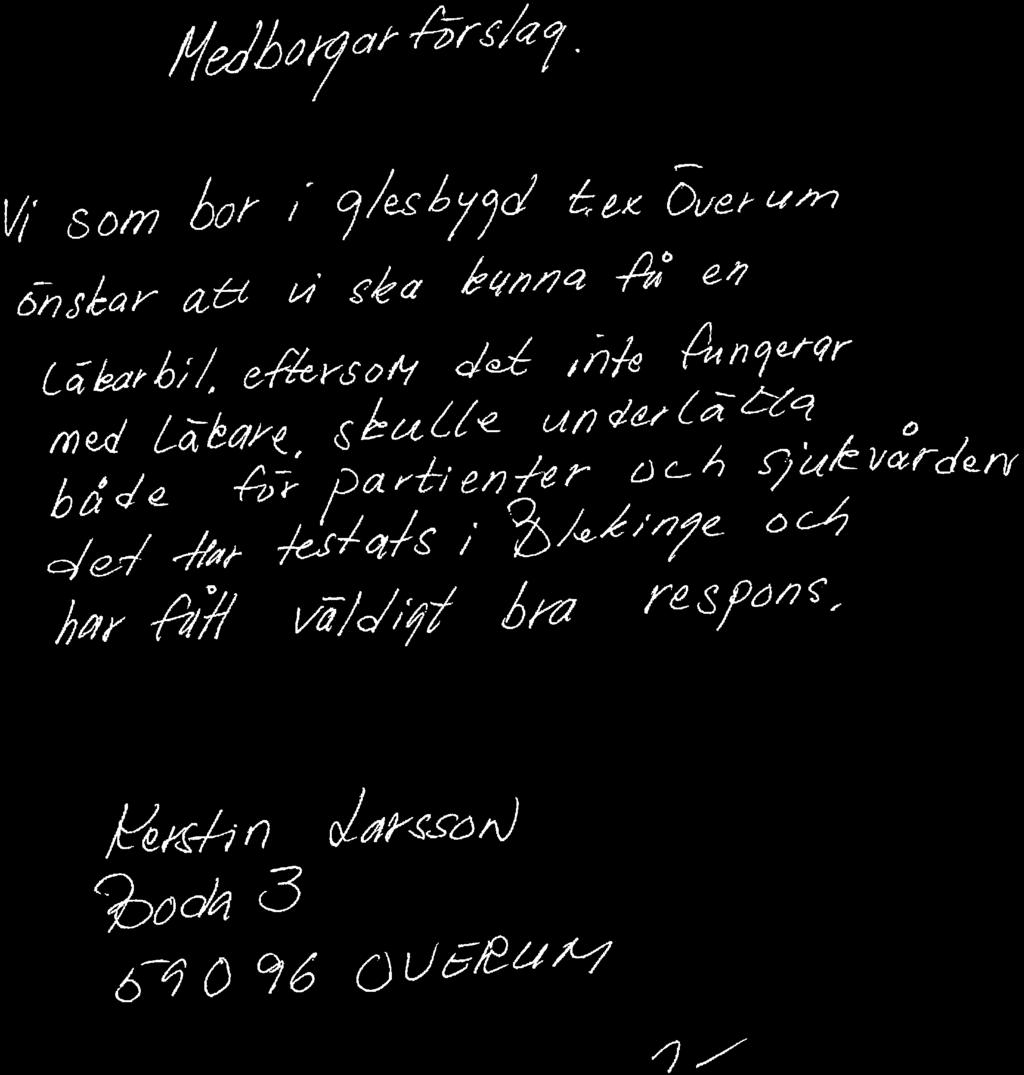 Medborgarförslag.
Vi som bor i glesbygd t.ex Överum
önskar att vi ska kunna få en
Läkarbil, eftersom det inte fungerar
med Läkare, skulle underlätta
både för partienter och sjukvården
det har testats i Blekinge och
har fått väldigt bra respons,
Kerstin Larsson
Boda 3
590 96 OVERUM